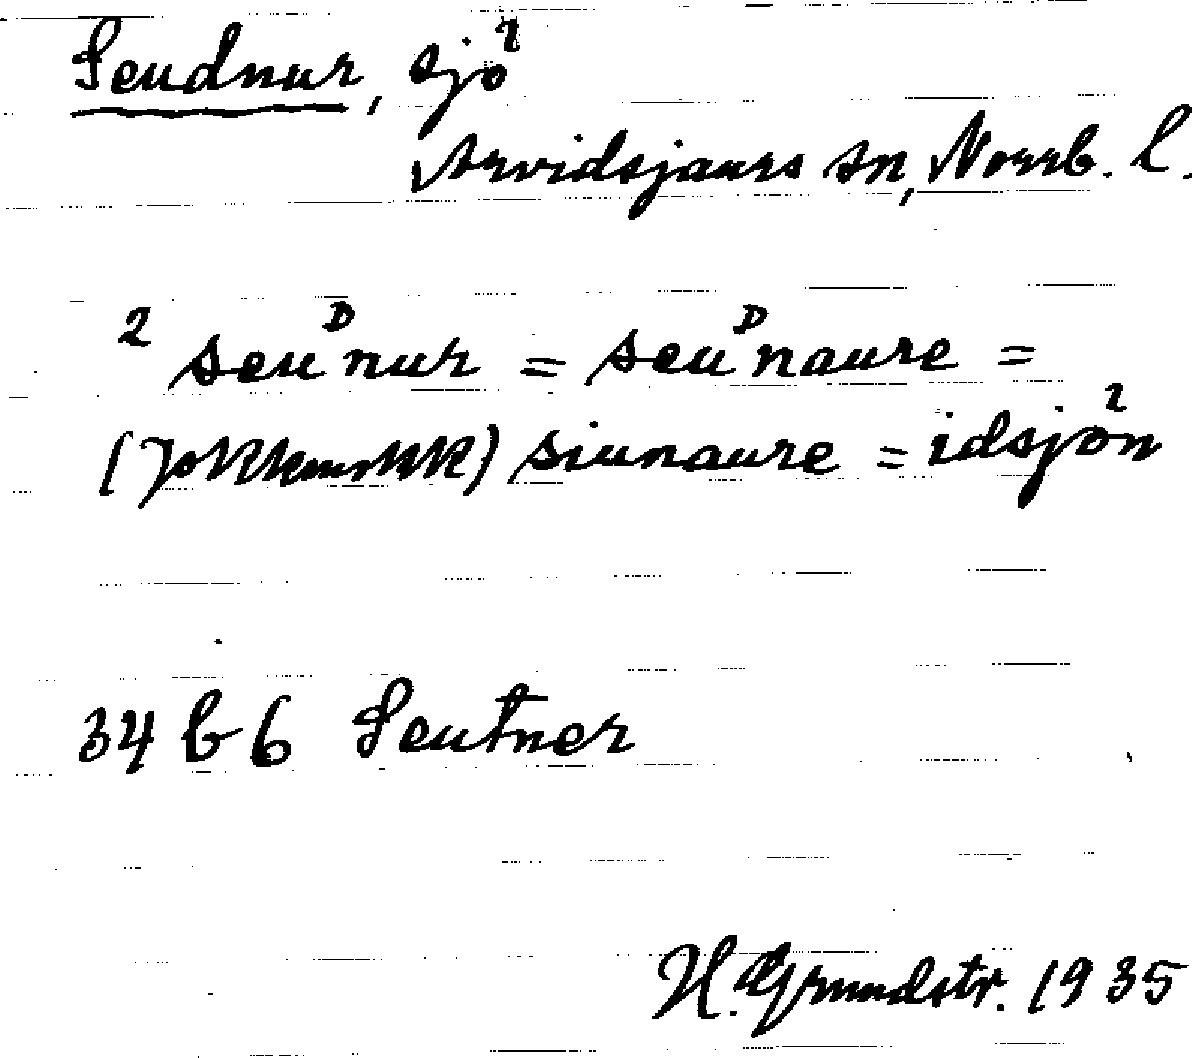 Seudnur, sjö
Arvidsjaurs sn, Norrb. l.
2 seuᴰnur = seuᴰnaure =
(Jokkmokk) siunaure = idsjön
34 b 6 Seutner
H. Grundstr. 1935